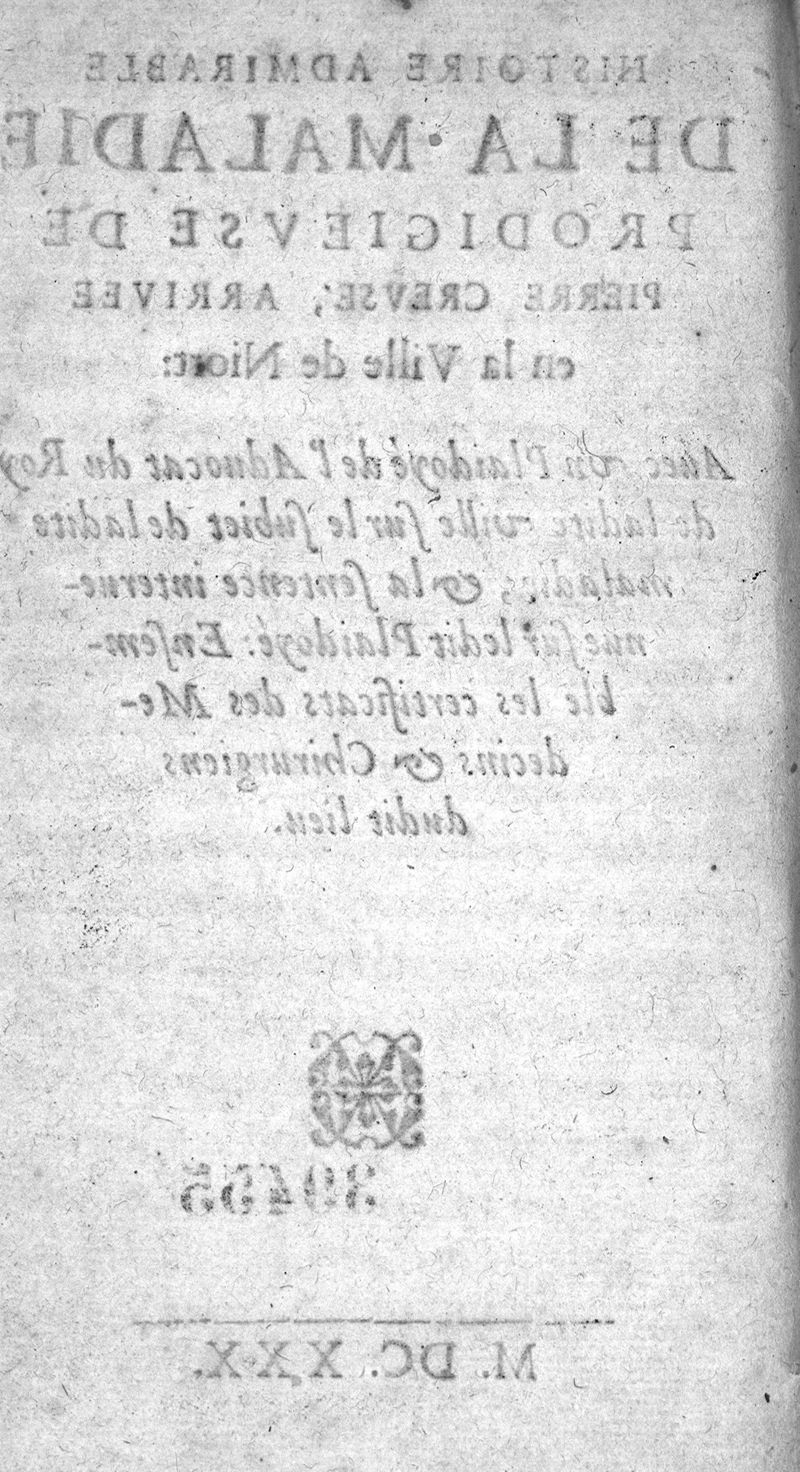 HISTOIRE ADMIRABLE
DE LA MALADIE
PRODIGIEVSE DE
PIERRE CREVSE, ARRIVEE
en la Ville de Niort:
Auec vn Plaidoyé de l'Aduocat du Roy
de ladite ville ſur le ſubiet de ladite
maladie, & la ſentence interue-
nue ſur ledit Plaidoyé: Enſem-
ble les certificats des Me-
decins & Chirurgiens
dudit lieu.
39455
M. DC. XXX.